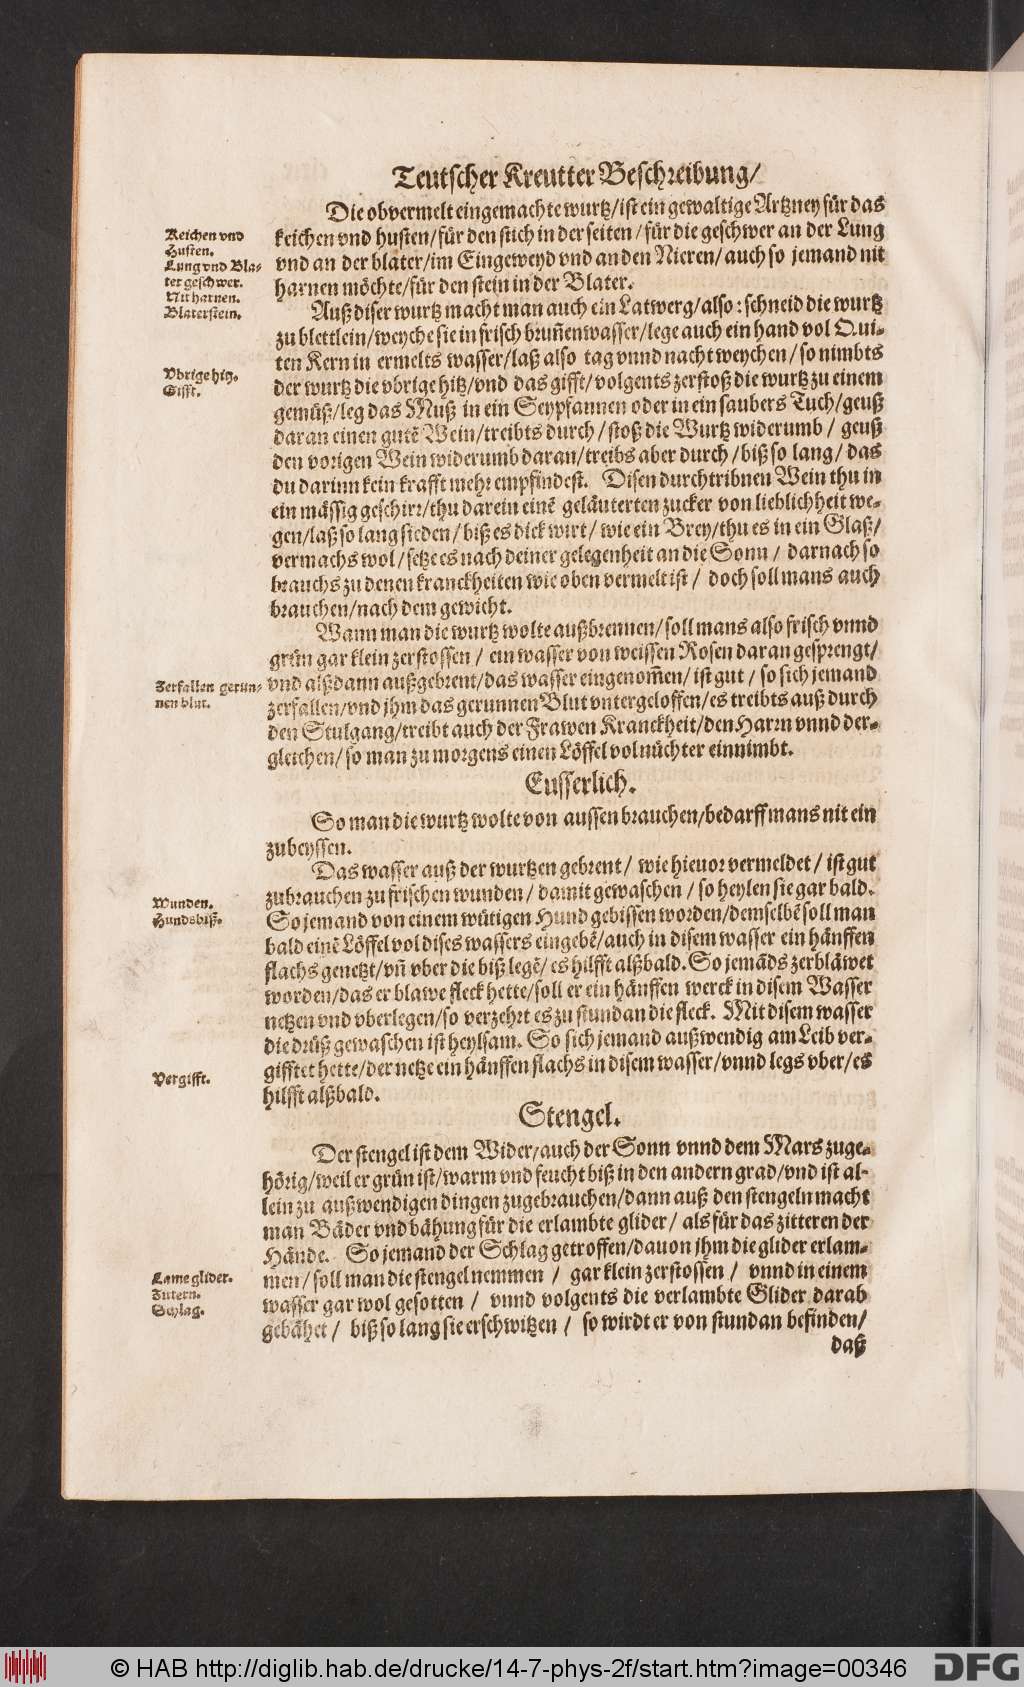 Teutscher Kreutter Beschreibung/
Die obvermelt eingemachte wurtz/ist ein gewaltige Artzney für das
keichen vnd husten/für den stich in der seiten/für die geschwer an der Lung
vnd an der blater/im Eingeweyd vnd an den Nieren/auch so jemand nit
harnen möchte/für den stein in der Blater.
Keichen vnd
Husten.
Lung vnd Bla-
ter geschwer.
Nit harnen.
Blaterstein.
Auß diser wurtz macht man auch ein Latwerg/also: schneid die wurtz
zu blettlein/weyche sie in frisch brun̄enwasser/lege auch ein hand vol Qui-
ten Kern in ermelts wasser/laß also tag vnnd nacht weychen/so nimbts
der wurtz die vbrige hitz/vnd das gifft/volgents zerstoß die wurtz zu einem
gemüß/leg das Muß in ein Seypfannen oder in ein saubers Tuch/geuß
daran einen gutē Wein/treibts durch/stoß die Wurtz widerumb/geuß
den vorigen Wein widerumb daran/treibs aber durch/biß so lang/das
du darinn kein krafft mehr empfindest. Disen durchtribnen Wein thu in
ein mässig geschirr/thu darein einē geläuterten zucker von lieblichheit we-
gen/laß so lang sieden/biß es dick wirt/wie ein Brey/thu es in ein Glaß/
vermachs wol/setze es nach deiner gelegenheit an die Sonn/darnach so
brauchs zu denen kranckheiten wie oben vermelt ist/doch soll mans auch
brauchen/nach dem gewicht.
Vbrige hitz.
Gifft.
Wann man die wurtz wolte außbrennen/soll mans also frisch vnnd
grün gar klein zerstossen/ein wasser von weissen Rosen daran gesprengt/
vnd alßdann außgebrent/das wasser eingenom̄en/ist gut/so sich jemand
zerfallen/vnd jhm das gerunnen Blut vntergeloffen/es treibts auß durch
den Stulgang/treibt auch der Frawen Kranckheit/den Harrn vnnd der-
gleichen/so man zu morgens einen Löffel vol nüchter einnimbt.
Zerfallen gerun-
nen blut.
Eusserlich.
So man die wurtz wolte von aussen brauchen/bedarff mans nit ein
zubeyssen.
Das wasser auß der wurtzen gebrent/wie hieuor vermeldet/ist gut
zubrauchen zu frischen wunden/damit gewaschen/so heylen sie gar bald.
So jemand von einem wütigen Hund gebissen worden/demselbē soll man
bald einē Löffel vol dises wassers eingebē/auch in disem wasser ein hänffen
flachs genetzt/vn̄ vber die biß legē/es hilfft alßbald. So jemāds zerbläwet
worden/das er blawe fleck hette/soll er ein hänffen werck in disem Wasser
netzen vnd vberlegen/so verzehrt es zu stund an die fleck. Mit disem wasser
die drüß gewaschen ist heylsam. So sich jemand außwendig am Leib ver-
gifftet hette/der netze ein hänffen flachs in disem wasser/vnnd legs vber/es
hilfft alßbald.
Wunden.
Hundsbiß.
Vergifft.
Stengel.
Der stengel ist dem Wider/auch der Sonn vnnd dem Mars zuge-
hörig/weil er grün ist/warm vnd feucht biß in den andern grad/vnd ist al-
lein zu außwendigen dingen zugebrauchen/dann auß den stengeln macht
man Bäder vnd bähung für die erlambte glider/als für das zitteren der
Hände. So jemand der Schlag getroffen/dauon jhm die glider erlam-
men/soll man die stengel nemmen/gar klein zerstossen/vnnd in einem
wasser gar wol gesotten/vnnd volgents die verlambte Glider darab
gebähet/biß so lang sie erschwitzen/so wirdt er von stund an befinden/
Lame glider.
Zitern.
Schlag.
daß
© HAB http://diglib.hab.de/drucke/14-7-phys-2f/start.htm?image=00346
DFG